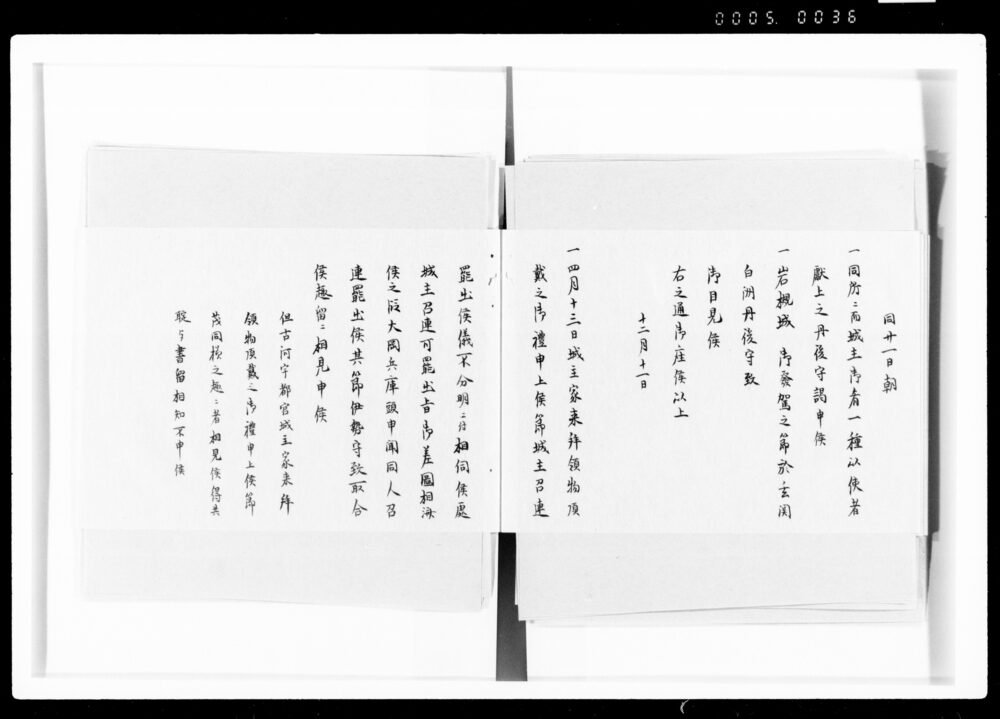 0005. 0036
同廿一日朝
一同所ニ而城主御肴一種以使者
献上之丹後守謁申候
一岩槻城 御發駕之節於玄関
白洲丹後守致
御目見候
右之通御座候以上
十二月十一日
一四月十三日城主家来拝領物頂
戴之御禮申上候節城主召連
罷出候儀不分明ニ付相伺候處
城主召連可罷出旨御差圖相済
候之段大岡兵庫頭申聞同人召
連罷出候其節伊勢守致取合
候趣留ニ相見申候
但古河宇都宮城主家来拝
領物頂戴之御禮申上候節
茂同様之趣ニ者相見候得共
聢与書留相知不申候